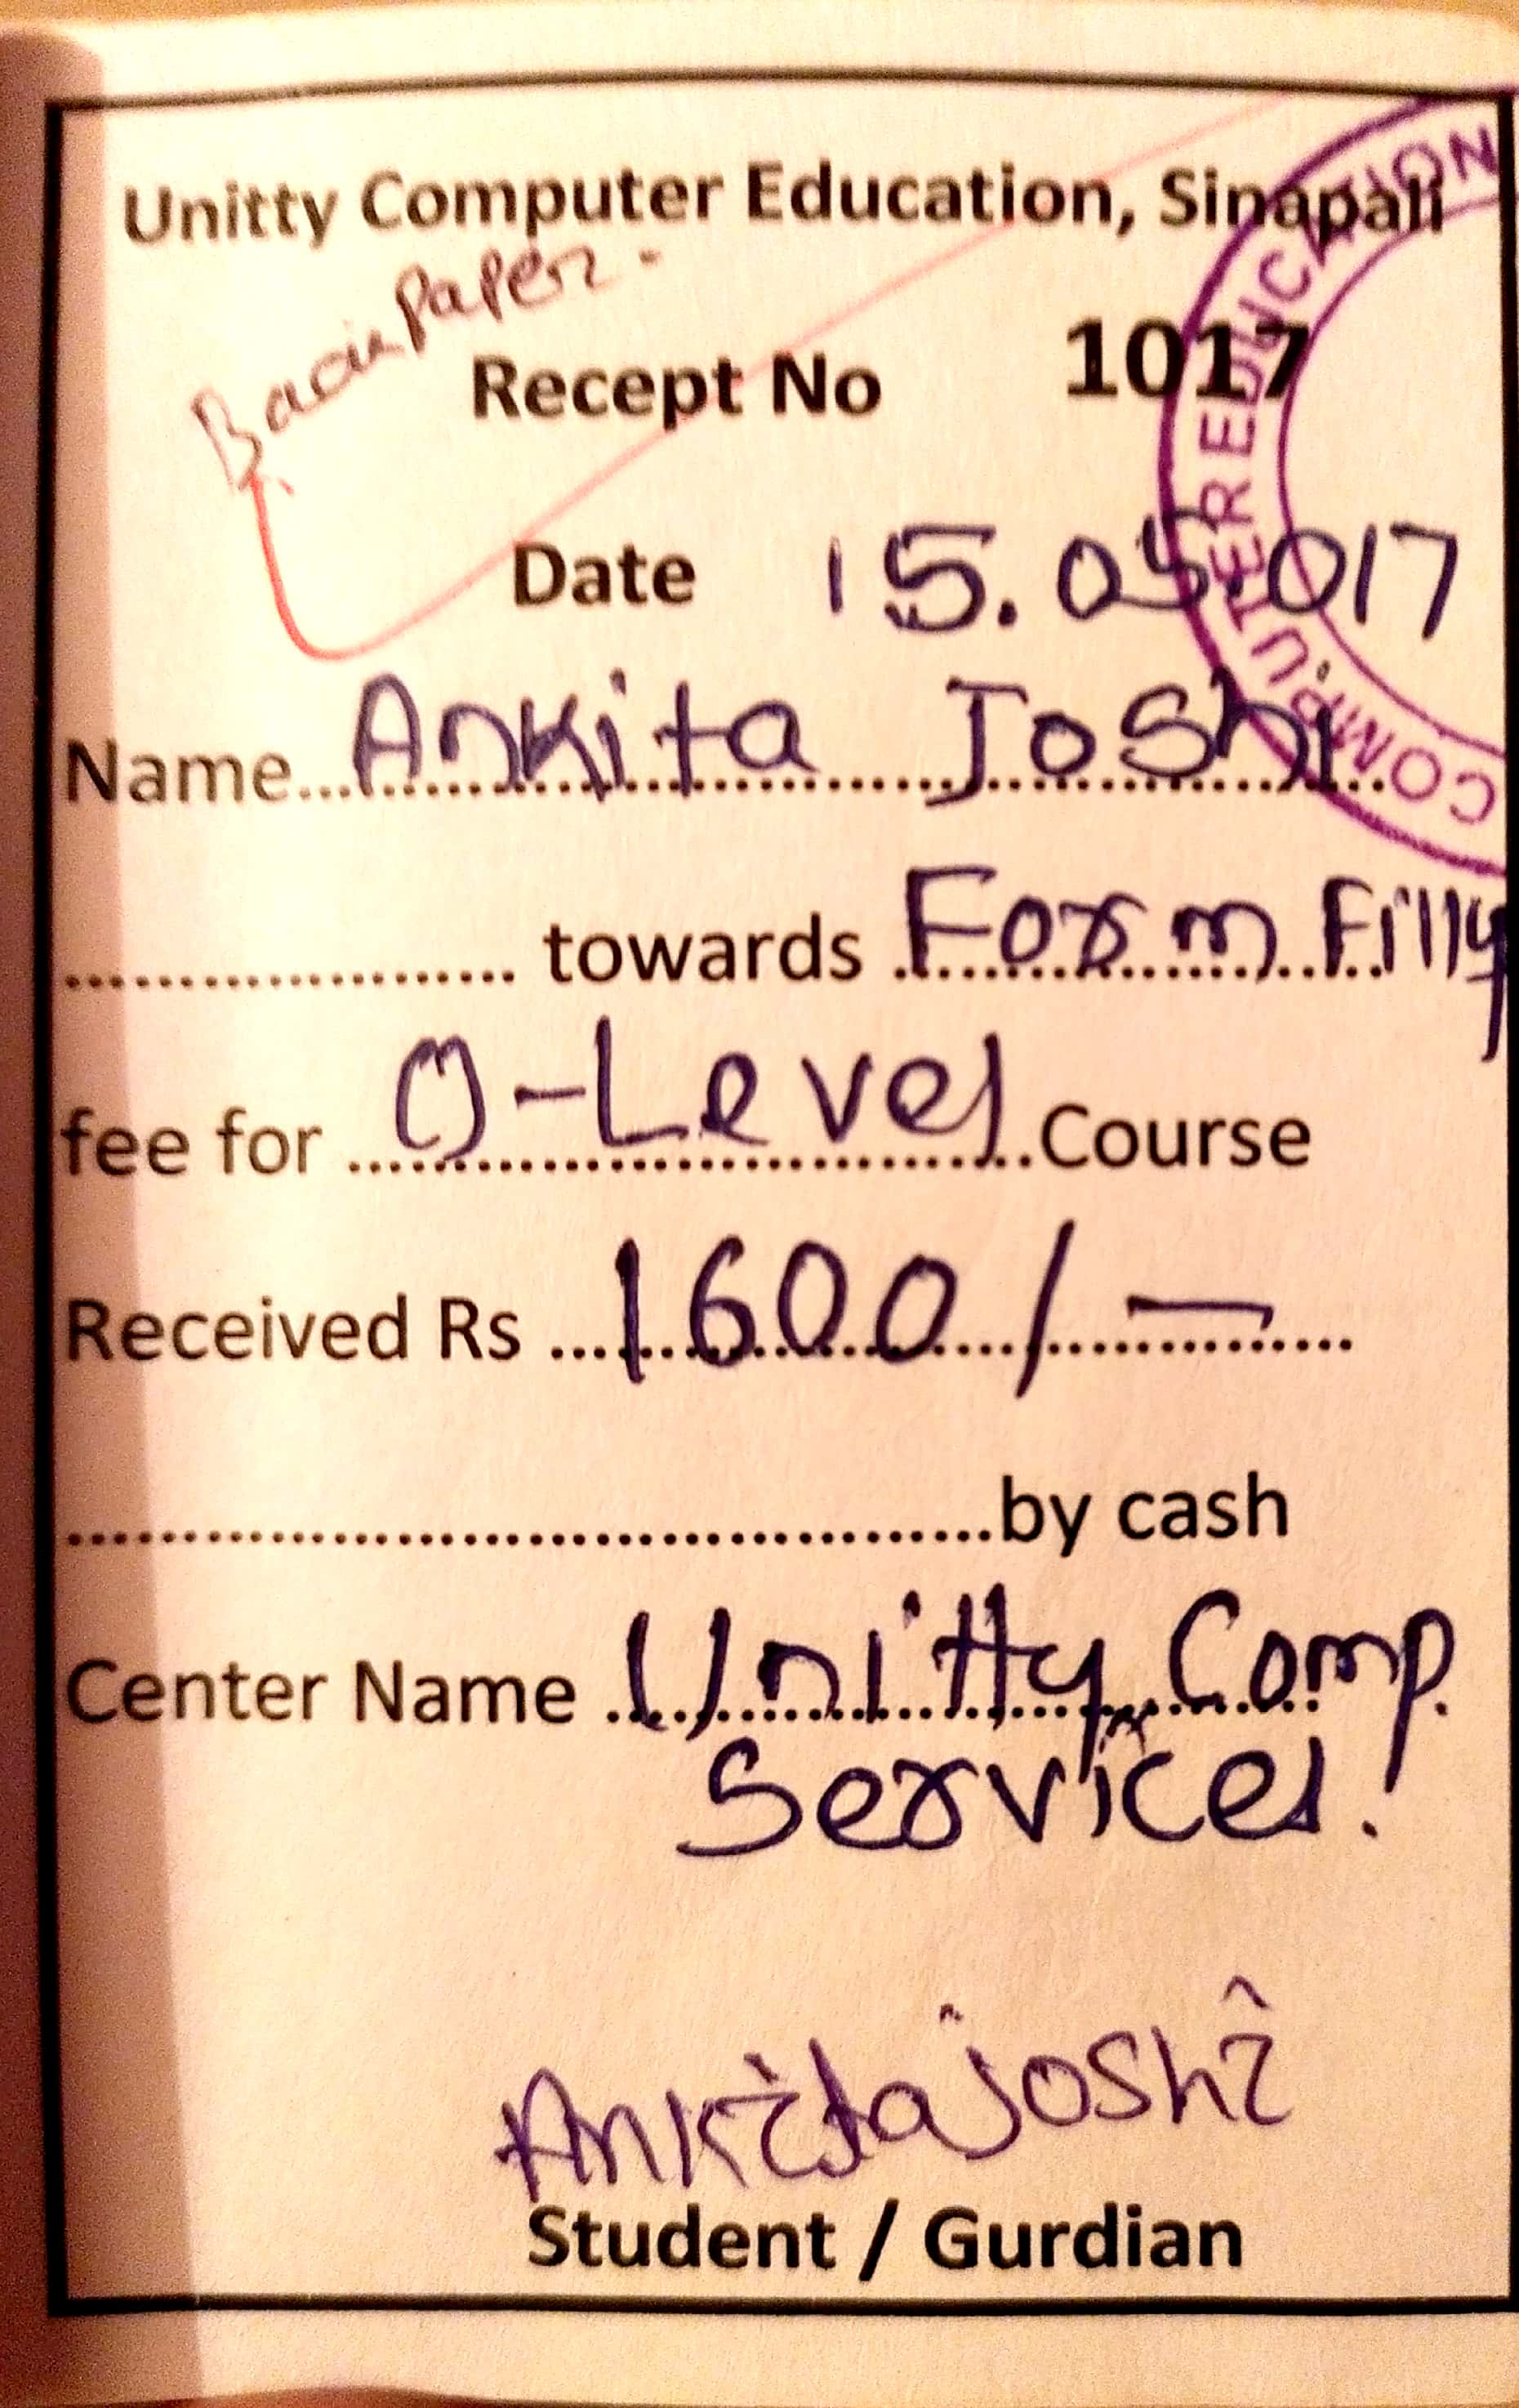 Unitty Computer Education, Sinapali
Back Paper.
Recept No 1017
Date 15.05.017
Name...Ankita Joshi
towards Form Filly
fee for O-Level Course
Received Rs 1600/-
by cash
Center Name Unitty Comp.
Services!
Ankita joshi
Student / Gurdian
COMPUTER EDUCATION